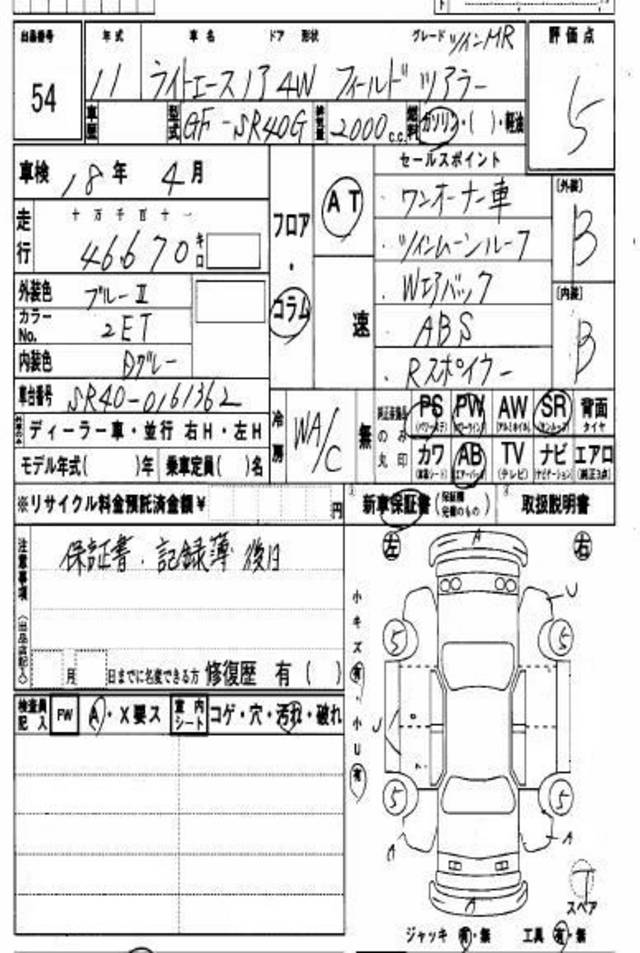 出品番号 年式 車名 ドア 形状 グレード ツインMR 評価点
54 11 ライトエースノア4W フィールドツアラー 5
車歴 型式 GF-SR40G 排気量 2000 c.c. 燃料 ガソリン・( )・軽油
車検 18年 4月 セールスポイント
走行 十万千百十一 46670 キロ フロア・コラム AT 速
・ワンオーナー車 [外装] B
・ツインムーンルーフ
・Wエアバック [内装] B
・ABS
・Rスポイラー
外装色 ブルーII
カラーNo. 2ET
内装色 Dグレー
車台番号 SR40-0161362 冷房 WA/C 無
ディーラー車・並行 右H・左H
モデル年式( )年 乗車定員( )名
純正装備品のみ丸印 PS (パワーステ) PW (パワーウインド) AW (アルミホイル) SR (サンルーフ) 背面タイヤ
カワ (本革シート) AB (エアーバック) TV (テレビ) ナビ (ナビゲーション) エアロ (純正3点)
※リサイクル料金預託済金額¥ 円 新車保証書 (保証機 完備のもの) 取扱説明書
注意事項(出品店記入) 保証書、記録簿 後日
月 日までに名変できる方 修復歴 有( )
検査員記入 FW A・X要ス 室内シート コゲ・穴・汚れ・破れ
左 右
小キズ有・小U有
A U
5 5
U
5 5
A A
A
T
スペア
ジャッキ 有・無 工具 有・無